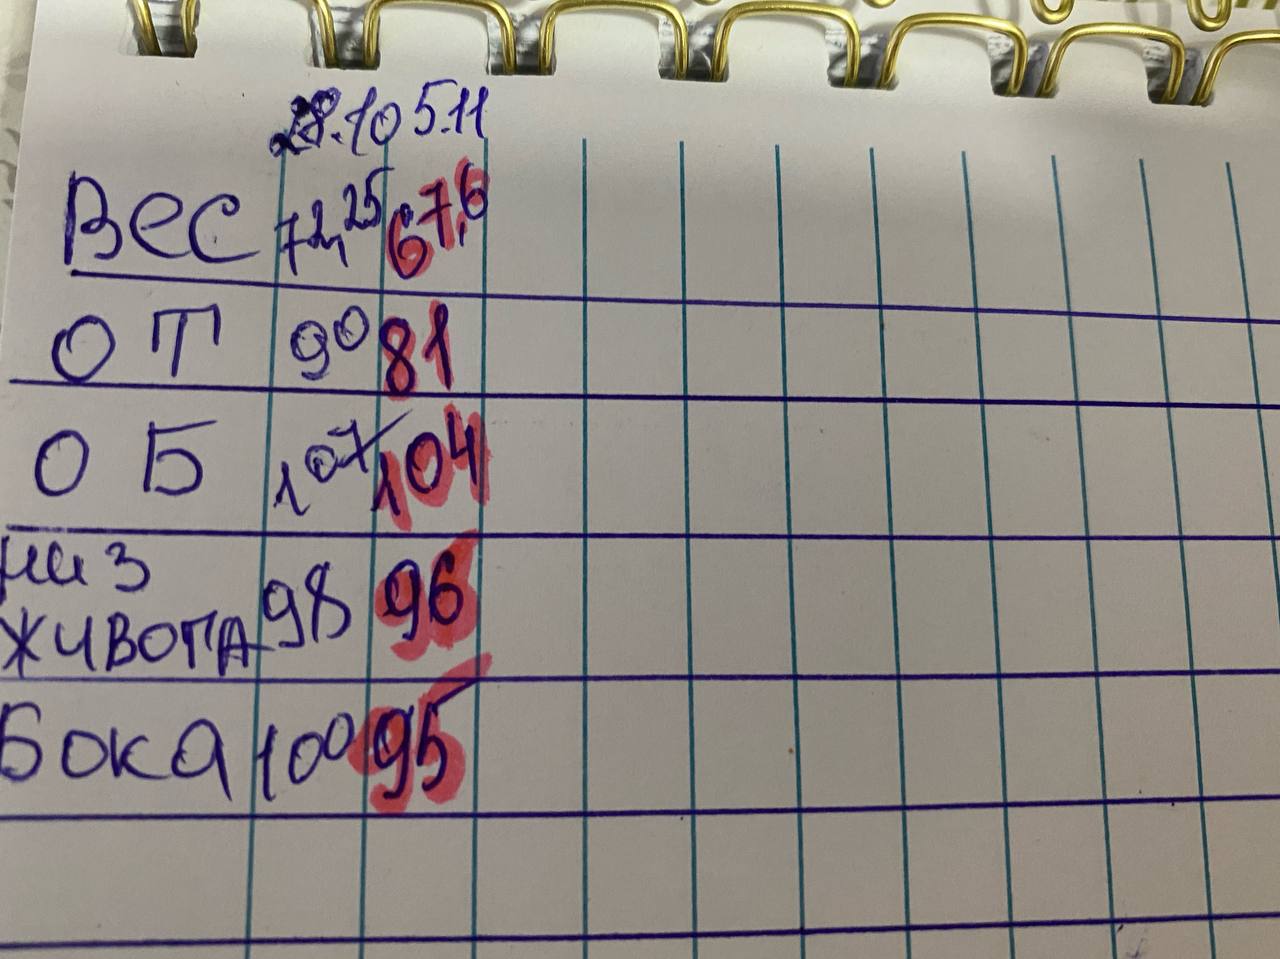 28.10 5.11
Вес 72,25 67,6
ОТ 90 81
ОБ 107 104
низ
живота 98 96
Бока 100 95